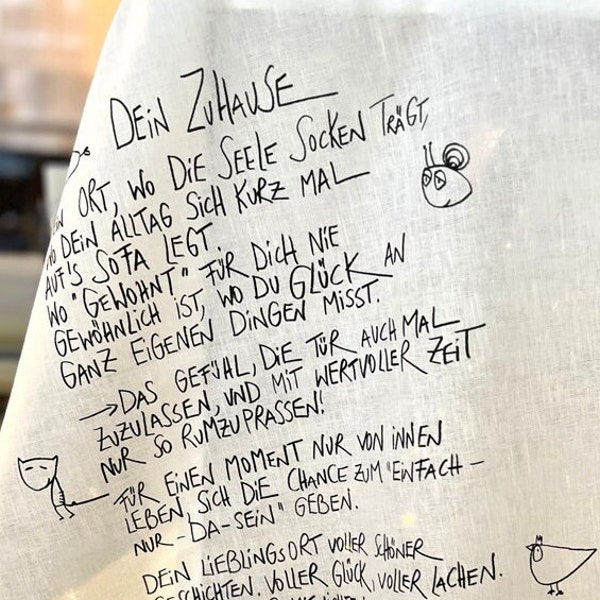 DEIN ZUHAUSE
ORT, WO DIE SEELE SOCKEN TRÄGT,
WO DEIN ALLTAG SICH KURZ MAL
AUF'S SOFA LEGT.
WO "GEWOHNT" FÜR DICH NIE
GEWÖHNLICH IST, WO DU GLÜCK AN
GANZ EIGENEN DINGEN MISST.
→ DAS GEFÜHL, DIE TÜR AUCH MAL
ZUZULASSEN, UND MIT WERTVOLLER ZEIT
NUR SO RUMZUPRASSEN!
FÜR EINEN MOMENT NUR VON INNEN
LEBEN, SICH DIE CHANCE ZUM "EINFACH-
NUR-DA-SEIN" GEBEN.
DEIN LIEBLINGSORT VOLLER SCHÖNER
GESCHICHTEN. VOLLER GLÜCK, VOLLER LACHEN.